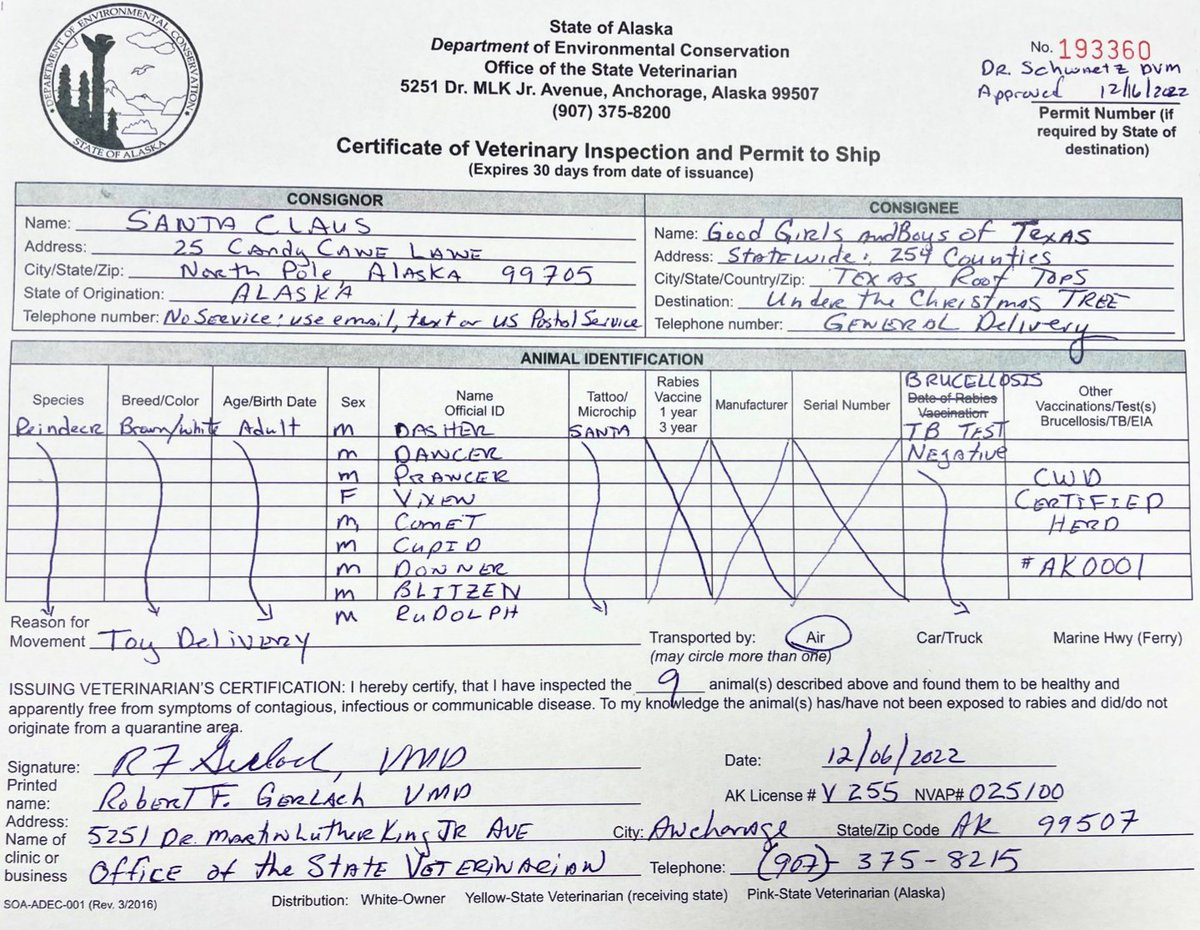 DEPARTMENT OF ENVIRONMENTAL CONSERVATION
STATE OF ALASKA
State of Alaska
Department of Environmental Conservation
Office of the State Veterinarian
5251 Dr. MLK Jr. Avenue, Anchorage, Alaska 99507
(907) 375-8200
No. 193360
DR. Schwartz DVM
Approved 12/16/2022
Permit Number (if
required by State of
destination)
Certificate of Veterinary Inspection and Permit to Ship
(Expires 30 days from date of issuance)
CONSIGNOR
Name: SANTA CLAUS
Address: 25 Candy Cane Lane
City/State/Zip: North Pole Alaska 99705
State of Origination: ALASKA
Telephone number: No Service: use email, text or US Postal Service
CONSIGNEE
Name: Good Girls and Boys of Texas
Address: Statewide: 254 Counties
City/State/Country/Zip: Texas Roof Tops
Destination: Under the Christmas TREE
Telephone number: GENERAL Delivery
ANIMAL IDENTIFICATION
Species Breed/Color Age/Birth Date Sex Name Official ID Tattoo/Microchip Rabies Vaccine 1 year 3 year Manufacturer Serial Number BRUCELLOSIS Date of Rabies Vaccination TB TEST Other Vaccinations/Test(s) Brucellosis/TB/EIA
Reindeer Brown/white Adult m DASHER SANTA
m DANCER Negative
m PRANCER CWD
F VIXEN CERTIFIED
m COMET HERD
m CUPID
m DONNER #AK0001
m BLITZEN
m RUDOLPH
Reason for
Movement Toy Delivery
Transported by: Air Car/Truck Marine Hwy (Ferry)
(may circle more than one)
ISSUING VETERINARIAN'S CERTIFICATION: I hereby certify, that I have inspected the 9 animal(s) described above and found them to be healthy and
apparently free from symptoms of contagious, infectious or communicable disease. To my knowledge the animal(s) has/have not been exposed to rabies and did/do not
originate from a quarantine area.
Signature: RF Gerlach, VMD
Date: 12/06/2022
Printed
name: Robert F. Gerlach VMD
AK License # V 255 NVAP# 025100
Address: 5251 Dr. Martin Luther King JR AVE
City: Anchorage State/Zip Code AK 99507
Name of
clinic or
business Office of the State Veterinarian
Telephone: (907)- 375-8215
SOA-ADEC-001 (Rev. 3/2016)
Distribution: White-Owner Yellow-State Veterinarian (receiving state) Pink-State Veterinarian (Alaska)